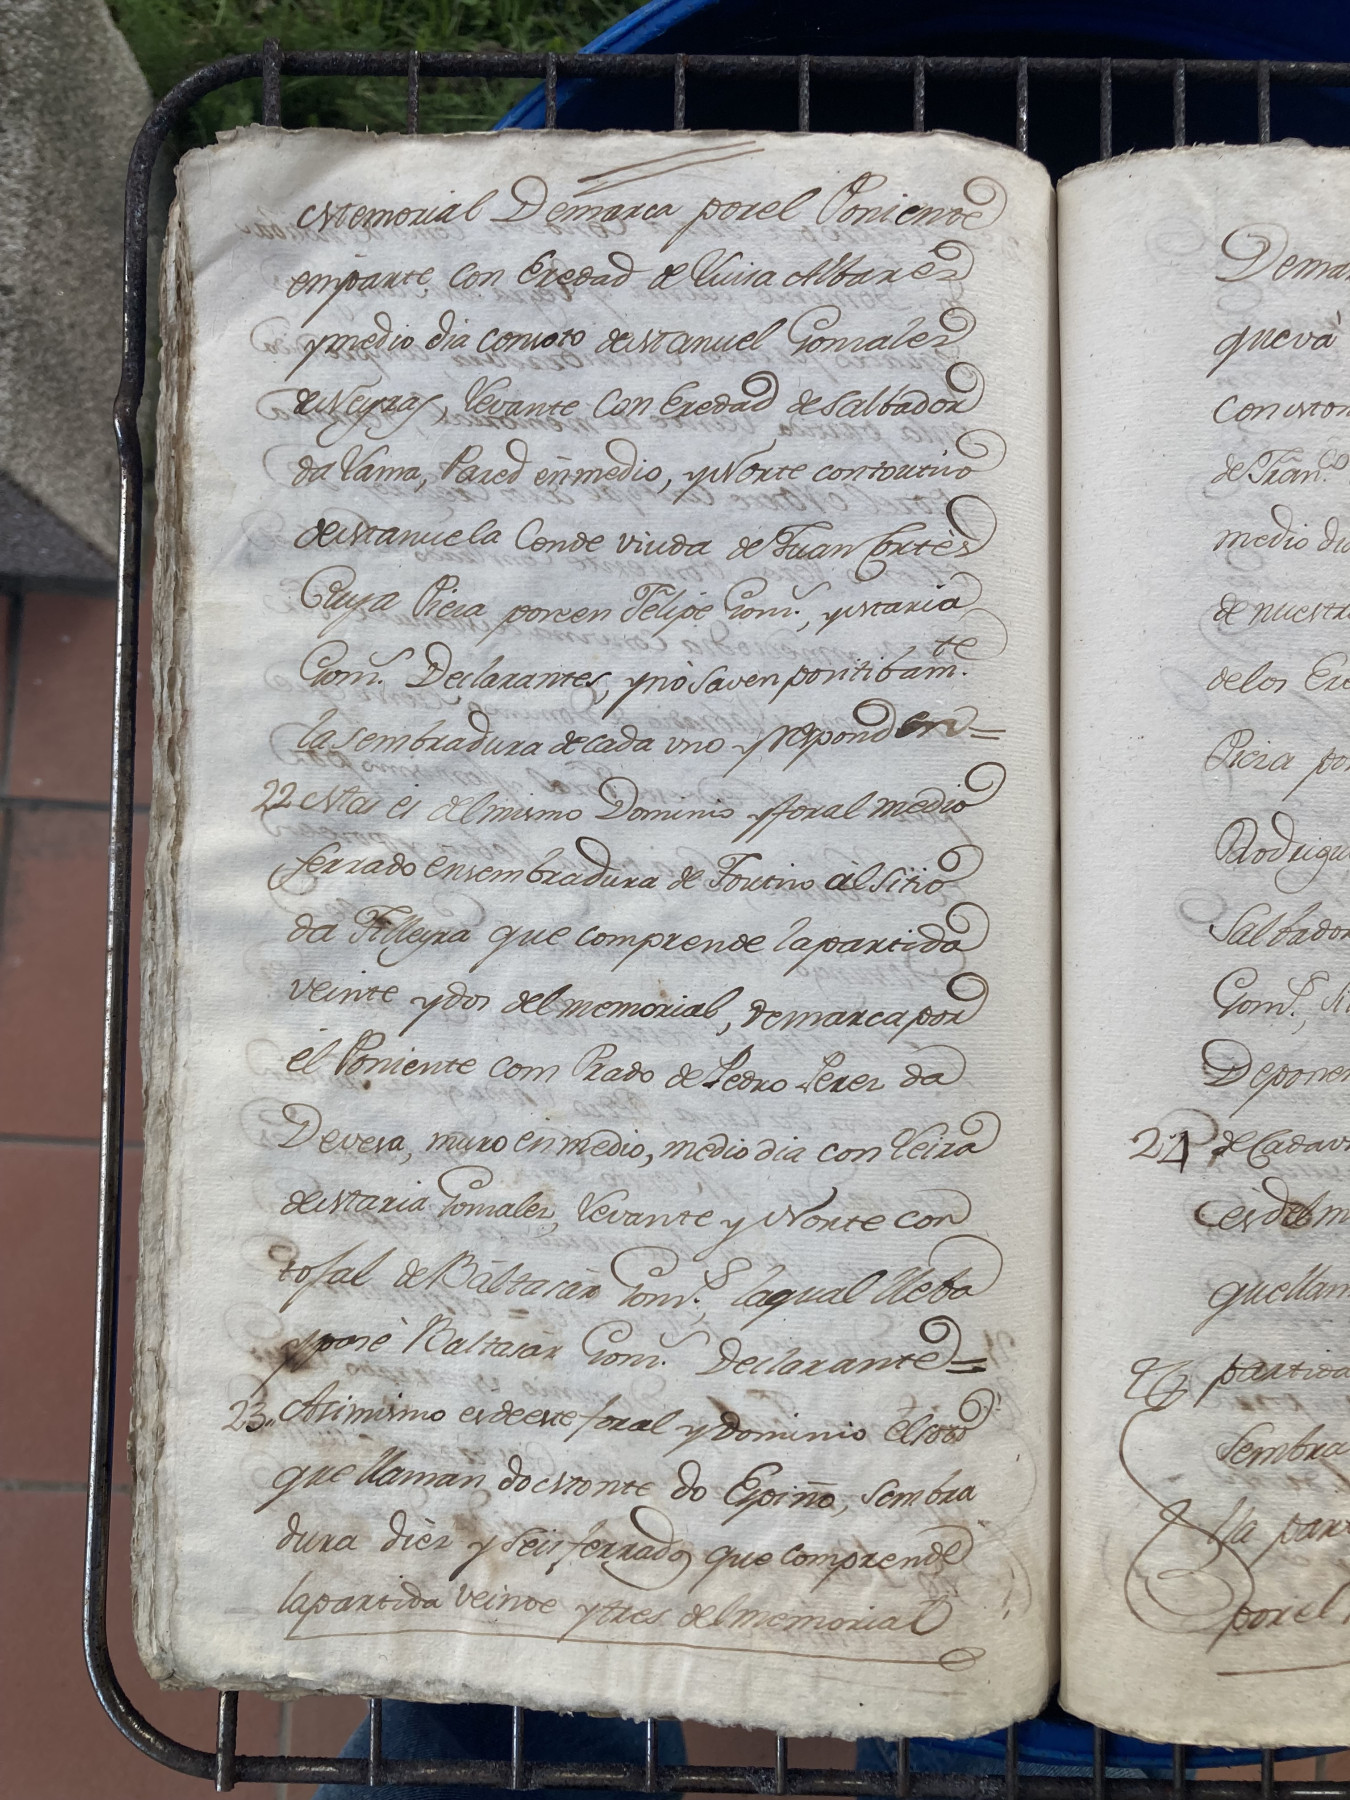 Memorial Demarca por el Poniente
enparte con Eredad de Luisa Albarez
y medio dia con soto de Manuel Gonzalez
de Neyra, Levante con Eredad de Salbador
da Vama, Pared enmedio, y Norte con tortivo
de Manuela Conde viuda de Juan Cortes
Cuya Pieza poseen Felipe Gonz., y Maria
Gonz. Declarantes, y nò saven positibam.te
la sembradura de cada uno y responden =
22 Mas es del mismo Dominio y foral medio
ferrado ensembradura de Toucino àl sitio
da Filleyra que comprende la partida
veinte y dos del memorial, demarca por
èl Poniente com Prado de Pedro Perez da
Devesa, muro en medio, medio dia con Leira
de Maria Gonzalez, Levante y Norte con
tosal de Bàltasàr Gonz., la qual lleba
y posè Baltasàr Gonz. Declarante =
23,, Asimismo es de este foral y dominio èl soto
que llaman do Monte do Espiño, sembra
dura dièz y seis ferrados que comprende
la partida veinte y tres del memorial
Demar
que và
con Mon
de Fran.co
medio di
de nuestr
de los Ere
Pieza po
Rodrigu
Salbador
Gonz.,
Deponen
de Cada v
24 es del m
que llam
partida
sembra
la par
por el